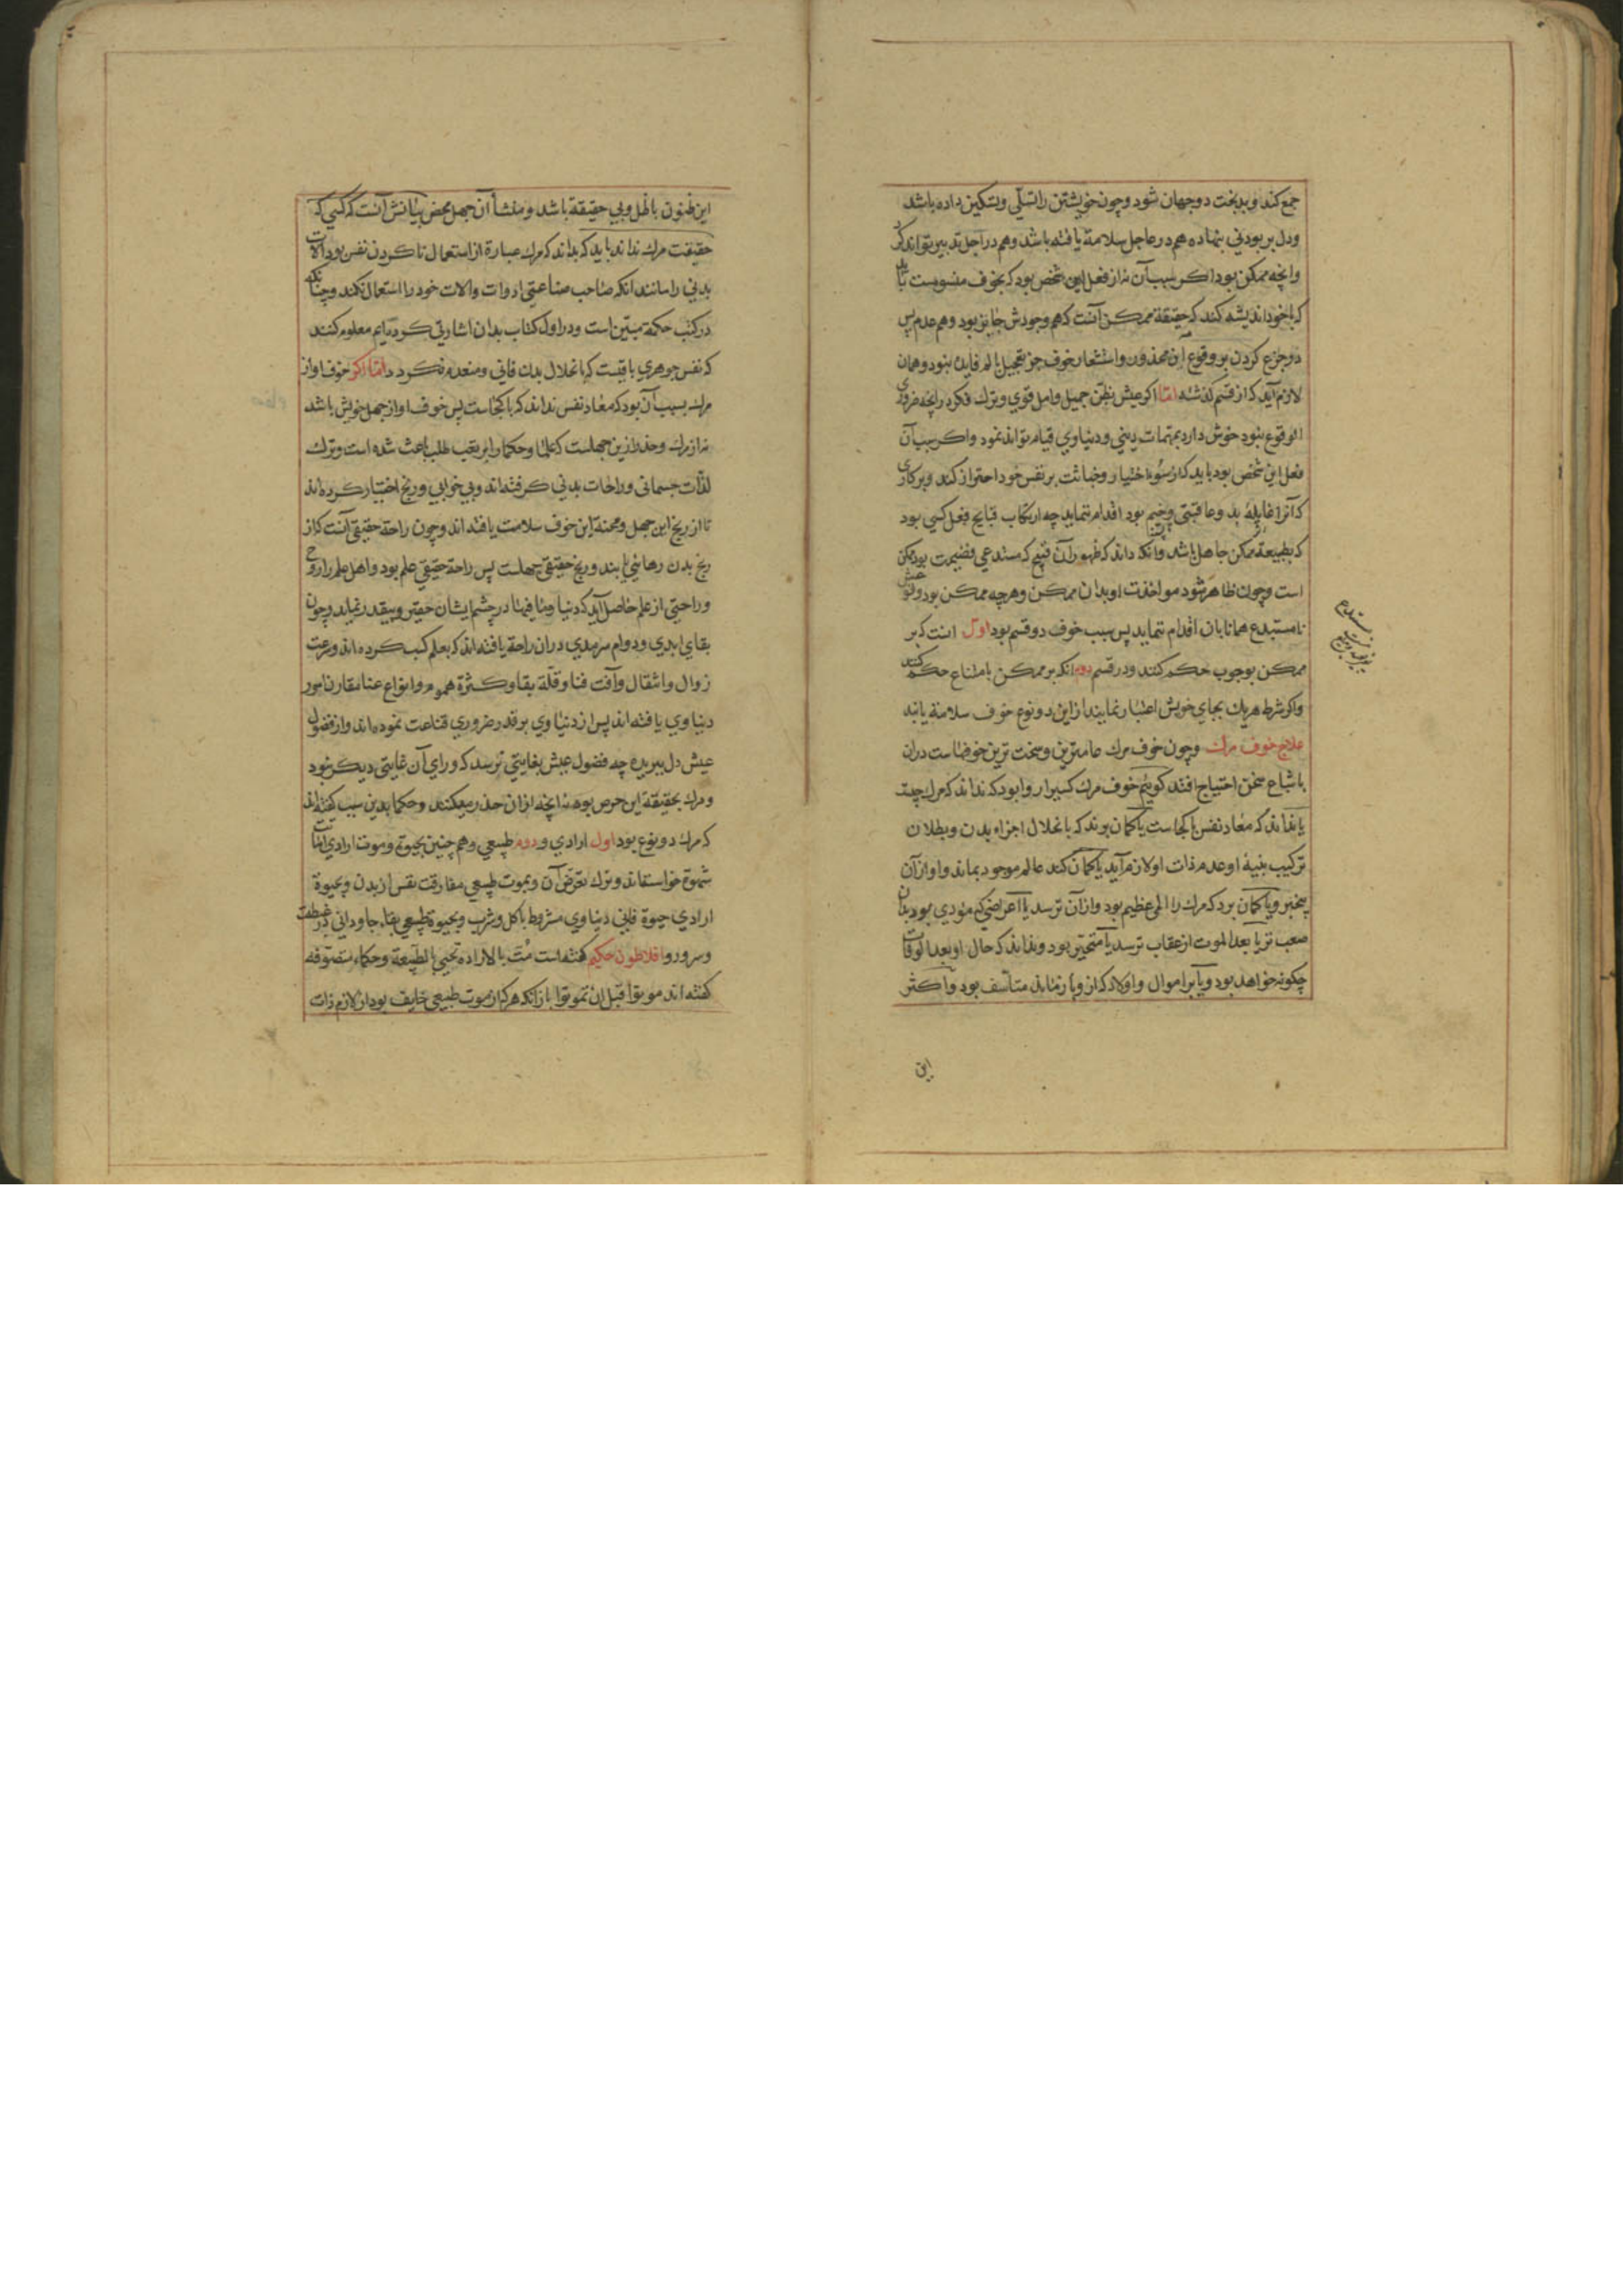 جمع کند و بدبخت دو جهان شود و چون خویشتن را تسلّی و تسکین داده باشد
و دل بر بودنی بنهاده هم در عاجل سلامة یافته باشد و هم در آجل تدبیر تواند کرد
و انچه ممکن بود اکر سبب آن نه از فعل این شخص بود که بخوف منسوبست باید
که با خود اندیشه کند که حقیقة ممکن آنست که هم وجودش جایز بود و هم عدم پس
در جزع کردن بر وقوع آن محذور و استشعار خوف جز تعجیل الم فایده نبود و همان
لازم آید که از قسم کذشته اما اکر عیش بظنّ جمیل و امل قوی و ترک فکر در انچه ضروری
الوقوع نبود خوش دارد بمهمات دینی و دنیاوی قیام تواند نمود و اکر سبب آن
فعل این شخص بود باید که از سوء اختیار و خیانت بر نفس خود احتراز کند و بر کاری
که آنرا غایلهٔ بد و عاقبتی وخیم بود اقدام ننماید چه ارتکاب قبایح فعل کسی بود
که بطبیعة ممکن جاهل باشد و آنکه داند که ظهور آن قبیح که مستدعی فضیحت بود ممکن
است و چون ظاهر شود مواخذت او بدان ممکن و هرچه ممکن بود وقوعش
نامستبدع همانا بان اقدام ننماید پس سبب خوف دو قسم بود اول انست که بر
ممکن بوجوب حکم کنند و در قسم دوم انکه بر ممکن بامتناع حکم کنند
و اکر شرط هریک بجای خویش اعتبار نمایند از این دو نوع خوف سلامة یابند
علاج خوف مرک و چون خوف مرک عامترین و سخت ترین خوفهاست دران
باشباع سخن احتیاج افتد کوییم خوف مرک کسیرا روا بود که نداند که مرک چیست
یا نداند که معاد نفس با کجاست یا کمان برد که بانحلال اجزاء بدن و بطلان
ترکیب بنیهٔ او عدم ذات او لازم آید یا کمان کند عالم موجود بماند و او از آن
بیخبر و یا کمان برد که مرک را المی عظیم بود و از آن ترسد یا اعراضی که مؤدی بود بدان
صعب تر یا بعد الموت از عقاب ترسد یا متحیّر بود و نداند که حال او بعد الوفات
چکونه خواهد بود و یا بر اموال و اولاد که از و باز ماند متأسف بود و اکثر
این
این ظنون باطل و بی حقیقة باشد و منشأ آن جهل محض بیانش آنست که کسی که
حقیقت مرک نداند باید که بداند که مرک عبارة از استعمال ناکردن نفس بود آلات
بدنی را مانند انکه صاحب صناعتی ادوات و الات خود را استعمال نکند و چنانکه
در کتب حکمة مبیّن است و در اول کتاب بدان اشارتی کرده ایم معلوم کنند
که نفس جوهری باقیست که بانحلال بدن فانی و منعدم نکردد اما اکر خوف او از
مرک بسبب آن بود که معاد نفس نداند که با کجاست پس خوف او از جهل خویش باشد
نه از مرک و حذر ازین جهلست که علما و حکما را بر تعب طلب باعث شده است و ترک
لذّات جسمانی و راحات بدنی کرفته اند و بی خوابی و رنج اختیار کرده اند
تا از رنج این جهل و محنة این خوف سلامت یافته اند و چون راحة حقیقی آنست که از
رنج بدن رهائی یابند و رنج حقیقی جهلست پس راحة حقیقی علم بود و اهل علم را روح
و راحتی از علم حاصل آید که دنیا و ما فیها در چشم ایشان حقیر و بیقدر نماید و چون
بقای ابدی و دوام سرمدی دران راحة یافته اند که بعلم کسب کرده اند و سرعت
زوال و انتقال و آفت فنا و قلّة بقا و کثرة هموم و انواع عنا مقارن امور
دنیاوی یافته اند پس از دنیاوی بر قدر ضروری قناعت نموده اند و از فضول
عیش دل ببریده چه فضول عیش بغایتی نرسد که ورای آن غایتی دیکر نبود
و مرک بحقیقة این حرص بود نه انچه ازان حذر میکنند و حکما بدین سبب کفته اند
که مرک دو نوع بود اول ارادی و دوم طبیعی و هم چنین بحیوة و موت ارادی اماتت
شهوة خواسته اند و ترک تعرّض آن و بموت طبیعی مفارقت نفس از بدن و بحیوة
ارادی حیوة فانی دنیاوی مشروط باکل و شرب و بحیوة طبیعی بقاء جاودانی در غبطت
و سرور و افلاطون حکیم کفته است مُت بالارادة تحیی بالطّبیعة و حکماء متصوّفه
کفته اند موتوا قبل ان تموتوا باز آنکه هرکه از موت طبیعی خایف بود از لازم ذات